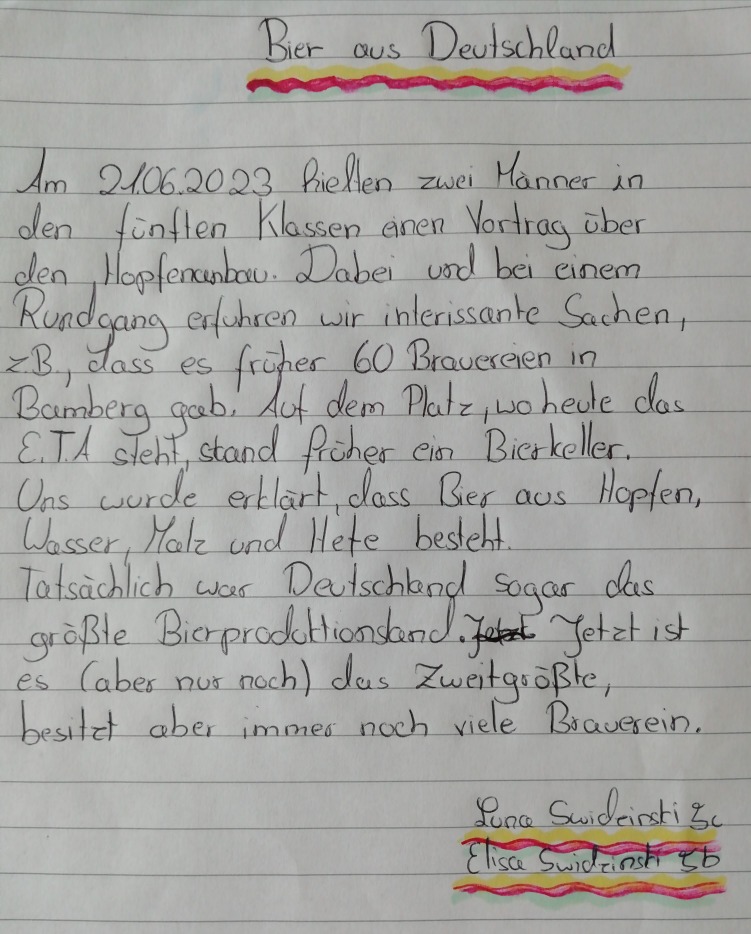 Bier aus Deutschland
Am 21.06.2023 hielten zwei Männer in
den fünften Klassen einen Vortrag über
den Hopfenanbau. Dabei und bei einem
Rundgang erfuhren wir interissante Sachen,
z.B., dass es früher 60 Brauereien in
Bamberg gab. Auf dem Platz, wo heute das
E.T.A steht, stand früher ein Bierkeller.
Uns wurde erklärt, dass Bier aus Hopfen,
Wasser, Malz und Hefe besteht.
Tatsächlich war Deutschland sogar das
größte Bierproduktionsland. Jetzt Jetzt ist
es (aber nur noch) das Zweitgrößte,
besitzt aber immer noch viele Brauerein.
Luna Swidzinski 5c
Elisa Swidzinski 5b